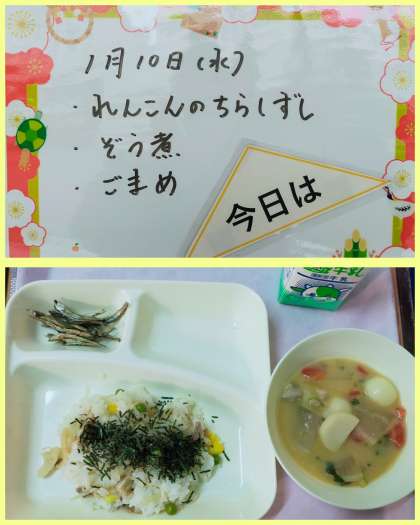 1月10日(水)
・れんこんのちらしずし
・ぞう煮
・ごまめ
今日は
牛乳